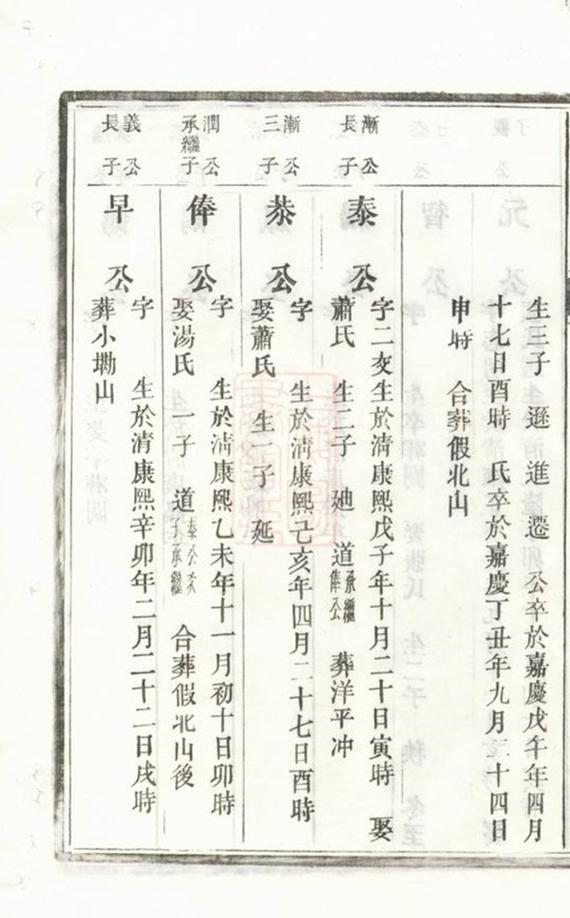 生三子　遜　進　遷　公卒於嘉慶戊午年四月
十七日酉時　氏卒於嘉慶丁丑年九月二十四日
申時　合葬假北山
漸公長子
泰公
字二交生於清康熙戊子年十月二十日寅時　娶
蕭氏　生二子　廸　道承繼俸公　葬洋平冲
漸公三子
恭公
字　生於清康熙己亥年四月二十七日酉時
娶蕭氏　生一子　延
潤公承繼子
俸公
字　生於清康熙乙未年十一月初十日卯時
娶湯氏　一子　道泰公次子承繼　合葬假北山後
義公長子
早公
字　生於清康熙辛卯年二月二十二日戌時
葬小墈山